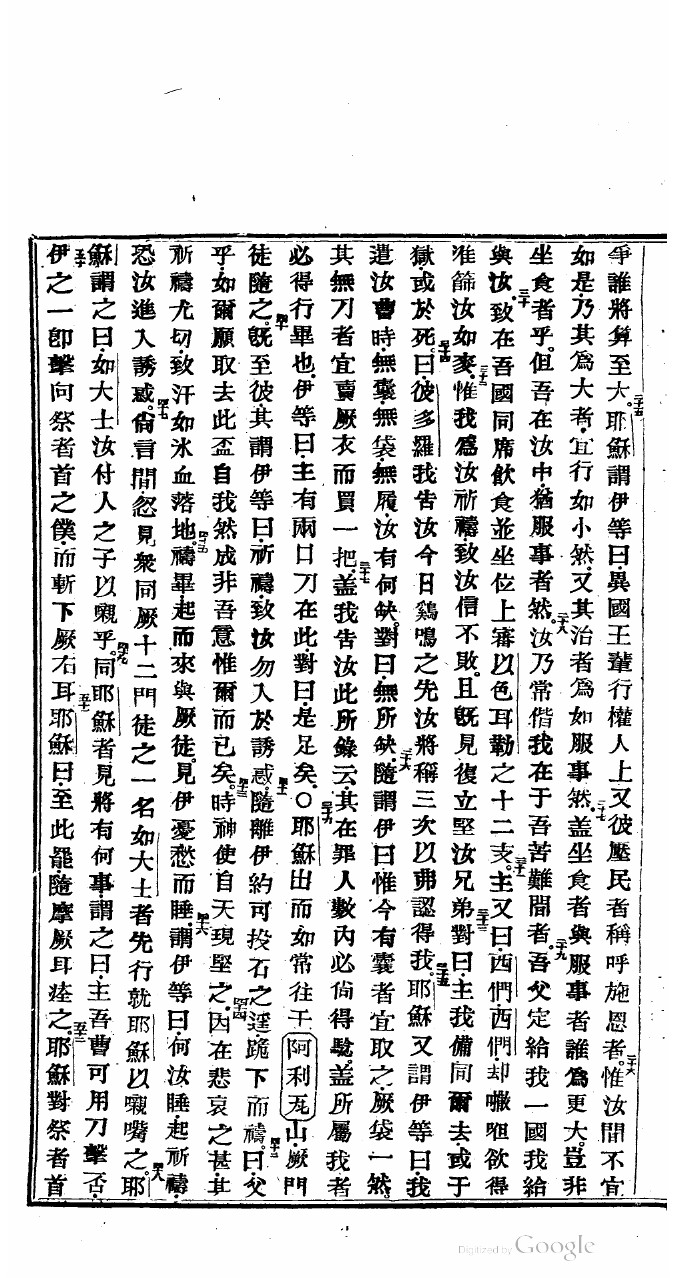 爭誰將算至大。二十五耶穌謂伊等曰、異國王輩行權人上、又彼壓民者稱呼施恩者。二十六惟汝間不宜
如是、乃其爲大者、宜行如小然、又其治者爲如服事然。二十七盖坐食者與服事者誰爲更大。豈非
坐食者乎。但吾在汝中、猶服事者然。二十八汝乃常偕我在于吾苦難間者。二十九吾父定給我一國我給
與汝、三十致在吾國同席飲食並坐位上審以色耳勒之十二支。三十一主又曰、西們、西們、却嗽咀欲得
准篩汝如麥、三十二惟我爲汝祈禱、致汝信不敗。且旣見復立堅汝兄弟、三十三對曰、主我備同爾去或于
獄、或於死。三十四曰、彼多羅我告汝今日鷄鳴之先汝將稱三次以弗認得我。三十五耶穌又謂伊等曰、我
遣汝曹時、無囊、無袋、無履、汝有何缺。對曰、無所缺。三十六隨謂伊曰惟今有囊者宜取之、厥袋一然。
其無刀者宜賣厥衣而買一把、三十七盖我告汝此所錄云、其在罪人數內必尙得騐。盖所屬我者
必得行畢也、伊等曰、主有兩口刀在此、對曰、是足矣、○三十九耶穌出而如常往于阿利瓦山、厥門
徒隨之。四十旣至彼、其謂伊等曰、祈禱、致汝勿入於誘惑、四十一隨離伊約可投石之遠跪下而禱。四十二曰、父
乎、如爾願取去此盃自我然成非吾意惟爾而已矣。四十三時神使自天現堅之、四十四因在悲哀之甚、其
祈禱尤切致汗如氷血落地。四十五禱畢、起而來與厥徒。見伊憂愁而睡、四十六謂伊等曰、何汝睡、起祈禱、
恐汝進入誘惑、四十七尙言間忽見衆同厥十二門徒之一名如大士者先行就耶穌以嘴嘴之、四十八耶
穌謂之曰、如大士汝付人之子以嘴乎。四十九同耶穌者見將有何事、謂之曰、主吾曹可用刀擊否、
五十伊之一卽擊向祭者首之僕、而斬下厥右耳、五十一耶穌曰、至此罷、隨摩厥耳痊之、五十二耶穌對祭者首
Digitized by Google